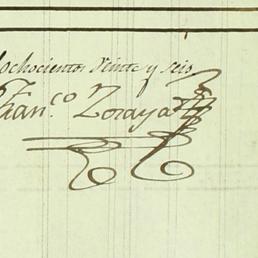 ochocientos Veinte y seis
Fran.co Zoraya